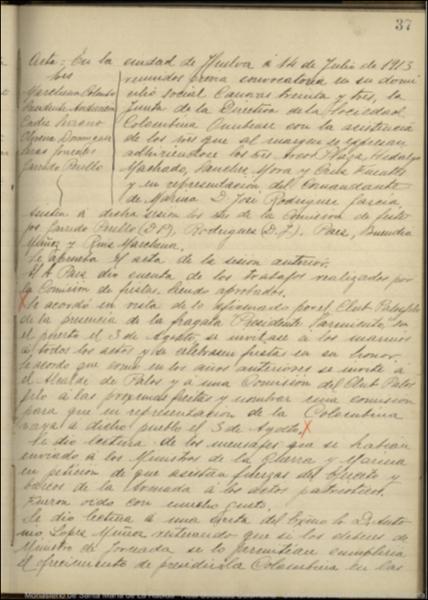 37
Acta: En la ciudad de Huelva á 14 de Julio de 1913
Sres
reunidos previa convocatoria en su domi
Marchena Colombo
cilio social Canovas treinta y tres, la
Junta de la Directiva de la Sociedad
Cadiz Serrano
Colombina Onubense con la asistencia
Dominguez
de los sres que al margen se expresan
adhiriendose los sres Hidalgo
Garrido Perelló
Machado, Sanchez Mora y
y en representacion del Comandante
de Marina D. José Rodriguez Garcia,
á dicha sesion los Sres de la Comision de feste
jos Garrido Perelló (D P), Rodriguez (D. J.), Buendia
Muñoz y Ruiz Marchena.
Se aprueba el acta de la sesion anterior.
El Sr dio cuenta de los trabajos realizados por
la Comision de fiestas siendo aprobados.
Se acordó en vista de lo por el Club Palósfilo
de la presencia de la fragata Presidente Sarmiento en
el puerto el 3 de Agosto, se invitase a los marinos
a todos los actos y se celebrasen fiestas en su honor.
Se acordó que como en los años anteriores se invite á
el Alcalde de Palos y a una Comision del Club Palos
filo á las proximas fiestas y nombrar una comision
para que en representacion de la Colombina
vaya á dicho pueblo el 3 de Agosto.
Se dio lectura de los mensajes que se habian
enviado á los Ministros de la Guerra y Marina
en peticion de que asistan fuerzas del Ejercito y
barcos de la Armada á los actos patrioticos.
Fueron oidos con mucho gusto.
Se dio lectura á una carta del Exmo Sr D. Anto
nio Lopez Muñoz reiterando que si los deberes de
Ministro de Jornada se lo permitian cumpliria
el ofrecimiento de presidir la Colombina en las